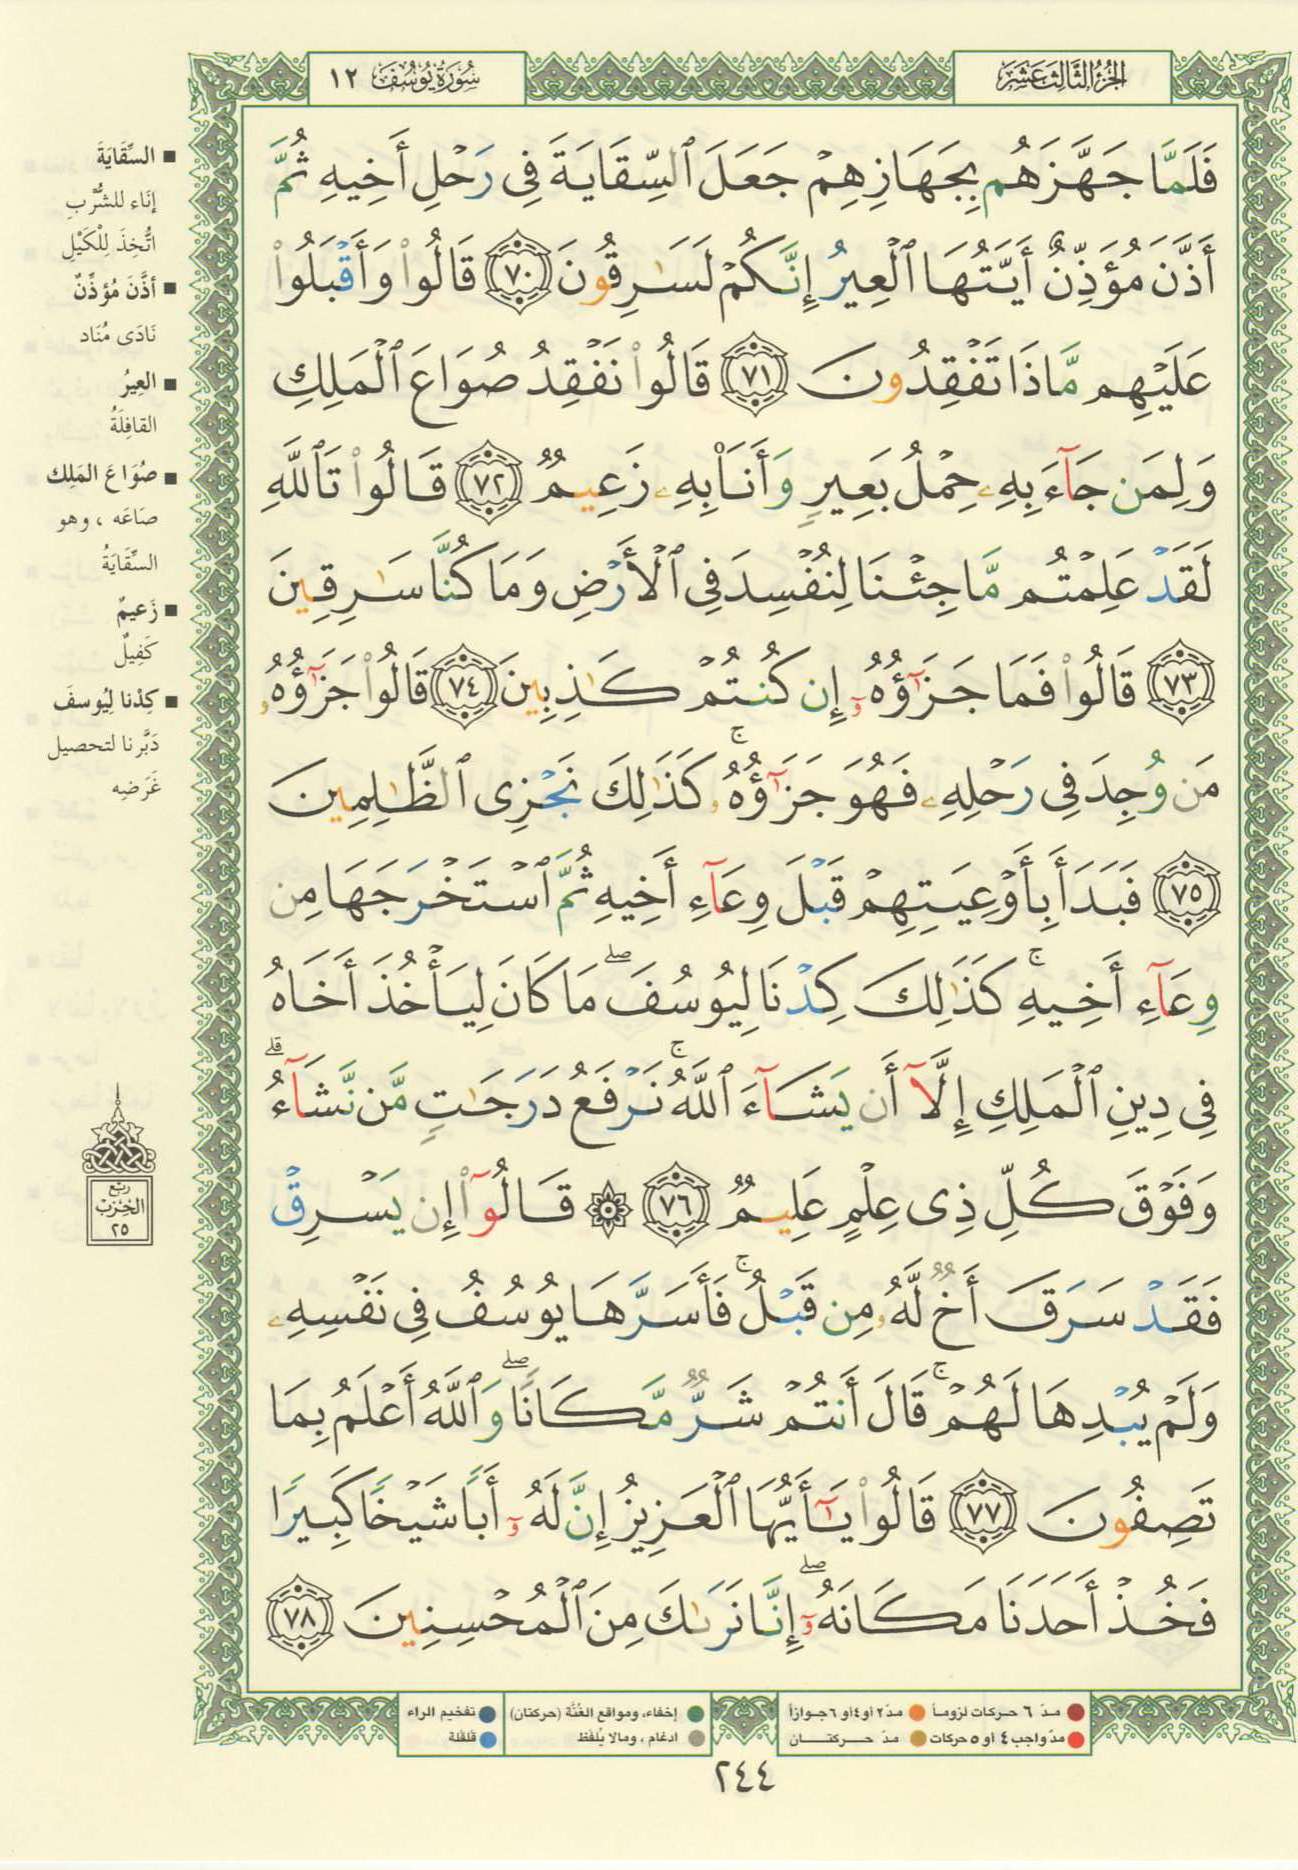 الجزء الثالث عشر
سورة يوسف ١٢
فَلَمَّا جَهَّزَهُم بِجَهَازِهِمْ جَعَلَ ٱلسِّقَايَةَ فِى رَحْلِ أَخِيهِ ثُمَّ
أَذَّنَ مُؤَذِّنٌ أَيَّتُهَا ٱلْعِيرُ إِنَّكُمْ لَسَٰرِقُونَ ٧٠ قَالُوا۟ وَأَقْبَلُوا۟
عَلَيْهِم مَّاذَا تَفْقِدُونَ ٧١ قَالُوا۟ نَفْقِدُ صُوَاعَ ٱلْمَلِكِ
وَلِمَن جَآءَ بِهِۦ حِمْلُ بَعِيرٍ وَأَنَا۠ بِهِۦ زَعِيمٌ ٧٢ قَالُوا۟ تَٱللَّهِ
لَقَدْ عَلِمْتُم مَّا جِئْنَا لِنُفْسِدَ فِى ٱلْأَرْضِ وَمَا كُنَّا سَٰرِقِينَ
٧٣ قَالُوا۟ فَمَا جَزَٰٓؤُهُۥٓ إِن كُنتُمْ كَٰذِبِينَ ٧٤ قَالُوا۟ جَزَٰٓؤُهُۥ
مَن وُجِدَ فِى رَحْلِهِۦ فَهُوَ جَزَٰٓؤُهُۥ ۚ كَذَٰلِكَ نَجْزِى ٱلظَّٰلِمِينَ
٧٥ فَبَدَأَ بِأَوْعِيَتِهِمْ قَبْلَ وِعَآءِ أَخِيهِ ثُمَّ ٱسْتَخْرَجَهَا مِن
وِعَآءِ أَخِيهِ ۚ كَذَٰلِكَ كِدْنَا لِيُوسُفَ ۖ مَا كَانَ لِيَأْخُذَ أَخَاهُ
فِى دِينِ ٱلْمَلِكِ إِلَّآ أَن يَشَآءَ ٱللَّهُ ۚ نَرْفَعُ دَرَجَٰتٍ مَّن نَّشَآءُ ۗ
وَفَوْقَ كُلِّ ذِى عِلْمٍ عَلِيمٌ ٧٦ ۞ قَالُوٓا۟ إِن يَسْرِقْ
فَقَدْ سَرَقَ أَخٌ لَّهُۥ مِن قَبْلُ ۚ فَأَسَرَّهَا يُوسُفُ فِى نَفْسِهِۦ
وَلَمْ يُبْدِهَا لَهُمْ ۚ قَالَ أَنتُمْ شَرٌّ مَّكَانًا ۖ وَٱللَّهُ أَعْلَمُ بِمَا
تَصِفُونَ ٧٧ قَالُوا۟ يَٰٓأَيُّهَا ٱلْعَزِيزُ إِنَّ لَهُۥٓ أَبًا شَيْخًا كَبِيرًا
فَخُذْ أَحَدَنَا مَكَانَهُۥٓ ۖ إِنَّا نَرَىٰكَ مِنَ ٱلْمُحْسِنِينَ ٧٨
■ السِّقَايَةَ
إنَاء للشُّرْبِ
اتُّخِذَ لِلْكَيْل
■ أذَّنَ مُؤذِّنٌ
نَادَى مُنَاد
■ العِيرُ
القافِلَةُ
■ صُوَاعَ المَلِك
صَاعَه ، وهو
السِّقَايَةُ
■ زَعيمٌ
كَفِيلٌ
■ كِدْنا لِيُوسفَ
دَبَّرنا لتحصيل
غَرَضِه
ربع
الحزب
٢٥
مدّ ٦ حركات لزوماً مدّ ٢ أو ٤ أو ٦ جوازاً
مدّ واجب ٤ أو ٥ حركات مدّ حركتان
إخفاء، ومواقع الغُنَّة (حركتان)
ادغام ، ومالا يُلفَظ
تفخيم الراء
قلقلة
٢٤٤